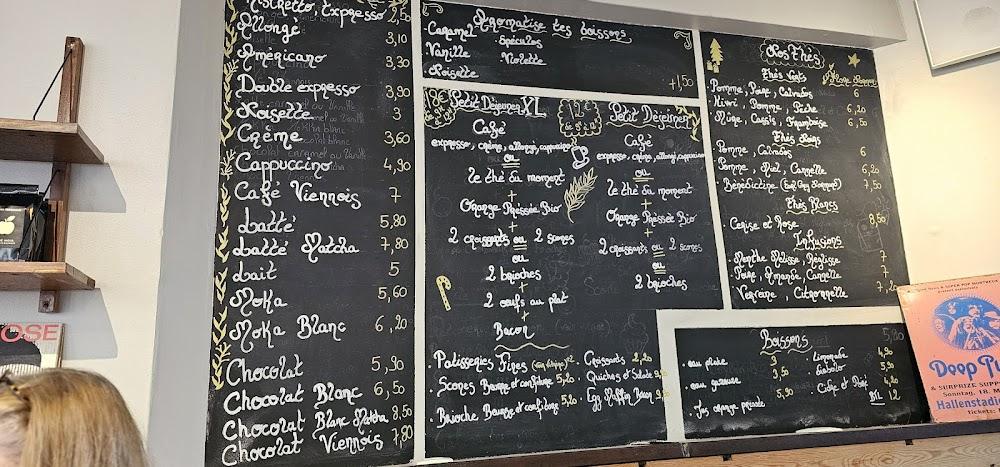 Expresso 2,50
Allongé 3,10
Américano 3,30
Double expresso 3,90
Noisette 3
Crème 3,60
Cappuccino 4,90
Café Viennois 7
Latté 5,80
Latté Matcha 7,80
Lait 5
Moka 5,60
Moka Blanc 6,20
Chocolat 5,90
Chocolat Blanc 6,50
Chocolat Blanc Matcha 8,50
Chocolat Viennois 7,80
Aromatise tes boissons
Caramel Spéculos
Vanille Violette
Noisette
+1,50
Petit Déjeuner XL
Café
expresso, crème, allongé, cappuccino
ou
le thé du moment
+
Orange Pressée Bio
+
2 croissants ou 2 scones
ou
2 brioches
+
2 oeufs au plat
+
Bacon
Petit Déjeuner
Café
expresso, crème, allongé, cappuccino
ou
le thé du moment
+
Orange Pressée Bio
+
2 croissants ou 2 scones
ou
2 brioches
Patisseries Fines
Scones Beurre et confiture 5,20
Brioche Beurre et confiture 5,20
Croissants 2,20
Quiches et Salade
Egg Muffin Bacon
Nos Thés
Thés Verts
Pomme, Poire, Calvados 6
Kiwi, Pomme, Pêche 6,20
Mûre, Cassis, Framboise 6,50
Thés Noirs
Pomme, Calvados 6
Pomme, Miel, Cannelle 6,20
Bénédictine 7,50
Thés Blancs
Cerise et Rose 8,50
Infusions
Menthe Mélisse, Réglisse 7
Poire, Amande, Cannelle 7
Verveine, Citronnelle 7,20
Boissons
eau plate 3
eau gazeuse 3,50
Jus orange pressée 5,90
Limonade 4,90
5,90
4,20
12
OSE
Deep Pu
& SURPRIZE SUPP
Sonntag, 18. M
Hallenstadi
tickets: